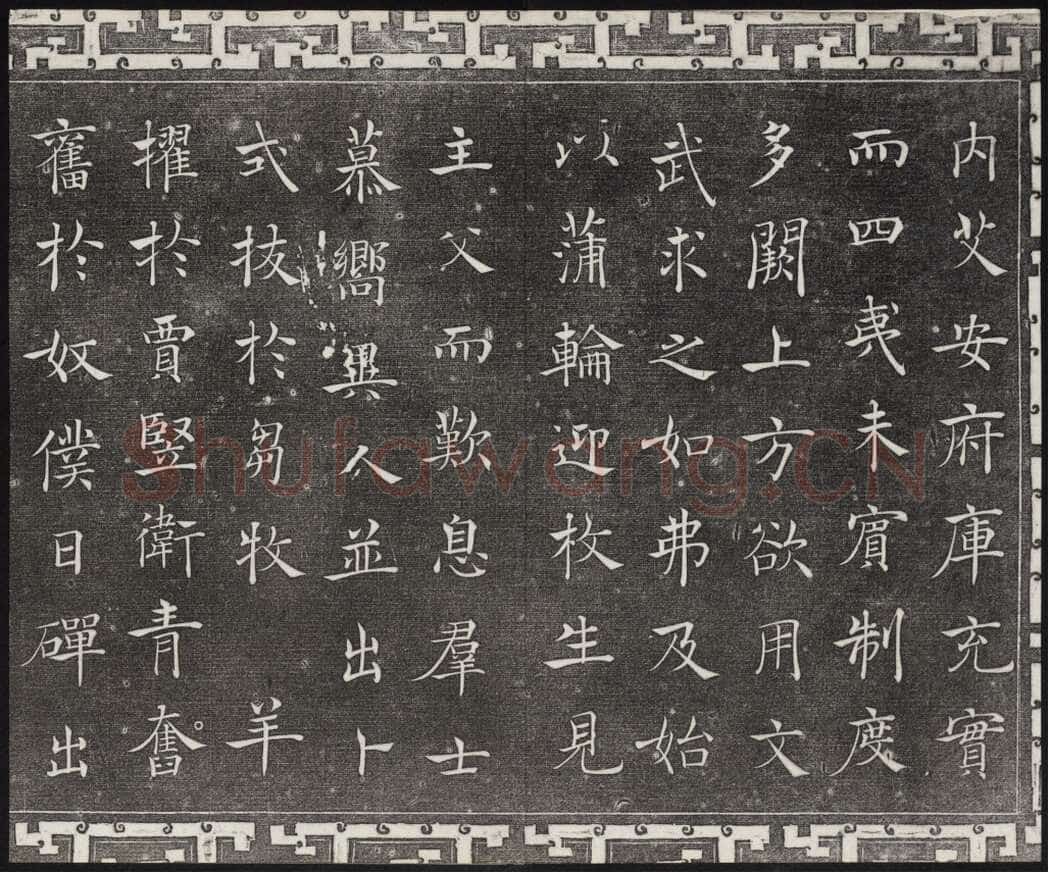 内艾安府庫充實
而四夷未賓制度
多闕上方欲用文
武求之如弗及始
以蒲輪迎枚生見
主父而歎息羣士
慕嚮異人並出卜
式拔於芻牧 羊
擢於賈豎衛青奮
奮於奴僕日磾出
Shufawang.CN